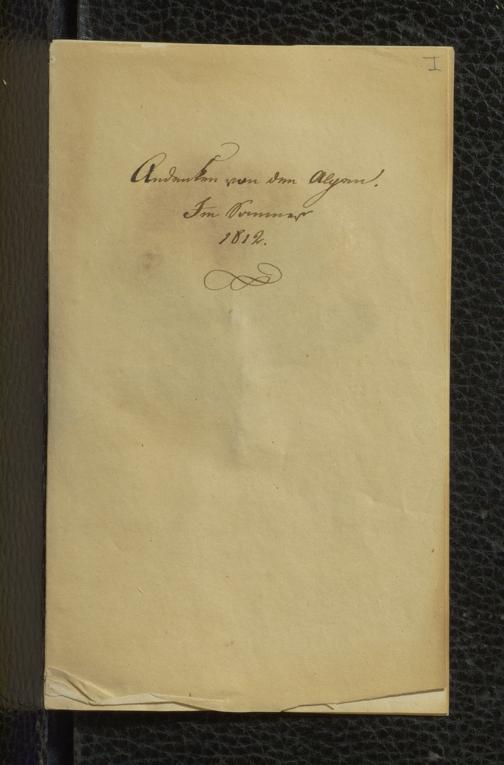 I
Andenken von den Alpen.
Im Sommer
1812.